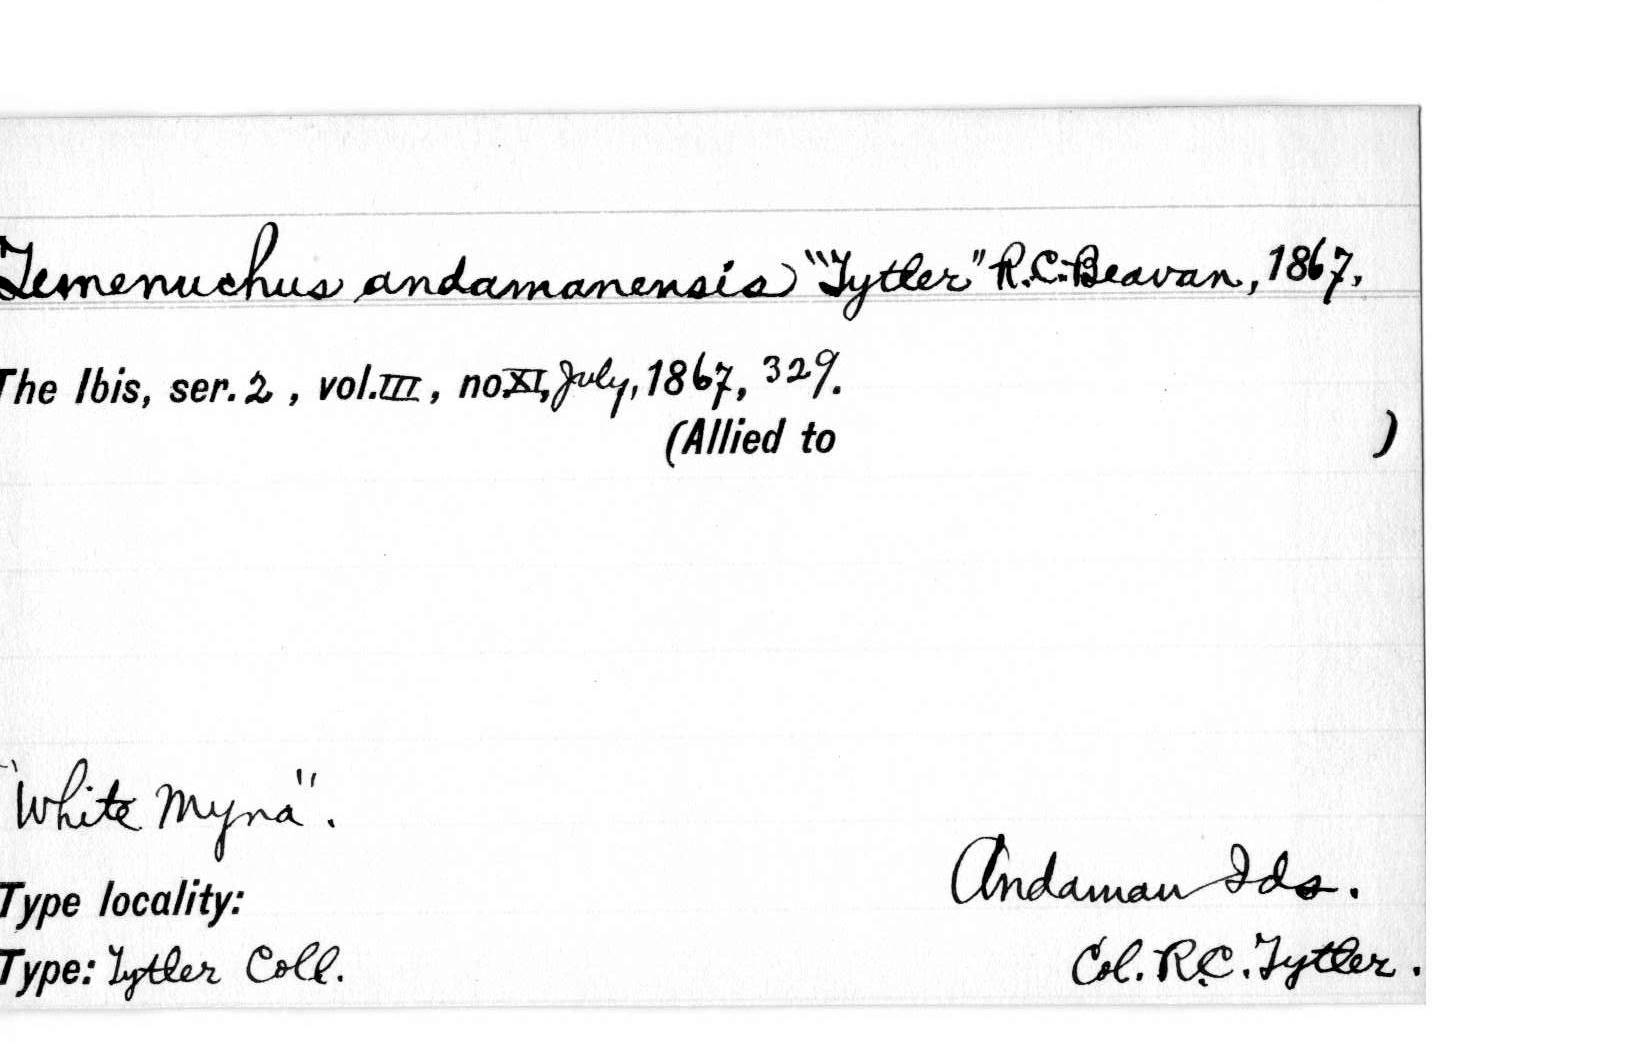 Temenuchus andamanensis "Tytler" R.C. Beavan, 1867.
The Ibis, ser. 2, vol. III, no. XI, July, 1867, 329.
(Allied to )
"White Myna".
Type locality: Andaman Ids.
Type: Tytler Coll. Col. R.C. Tytler.